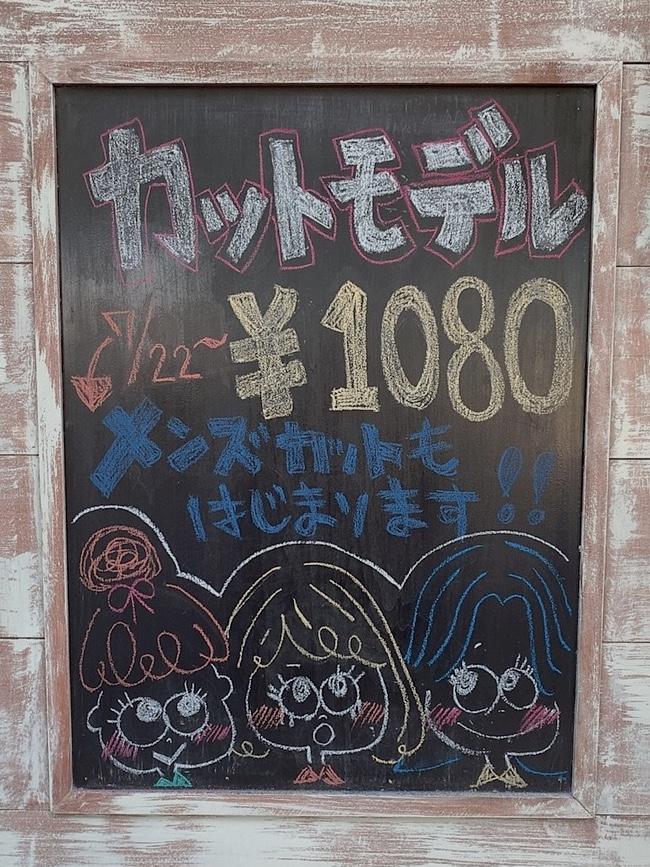 カットモデル
¥1080
7/22〜
メンズカットも
はじまります!!